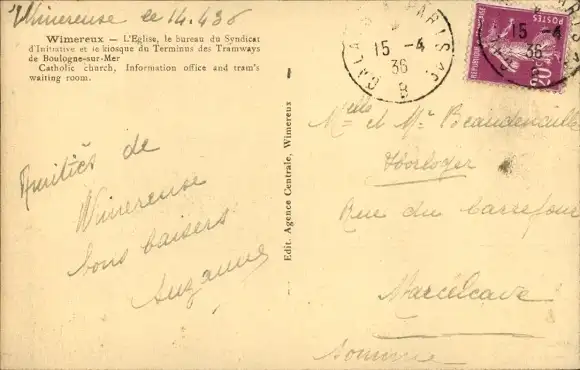 Wimereuse le 14.4 36
Wimereux — L'Eglise, le bureau du Syndicat
d'Initiative et le kiosque du Terminus des Tramways
de Boulogne-sur-Mer
Catholic church, Information office and tram's
waiting room.
Amitiés de
Wimereuse
bons baisers
Suzanne
Edit. Agence Centrale, Wimereux
CALAIS A PARIS
15 -4
36
B
POSTES
20c
15 -4
36
Melle et Mr
Horloger
Rue du Carrefour
Marcelcave
Somme